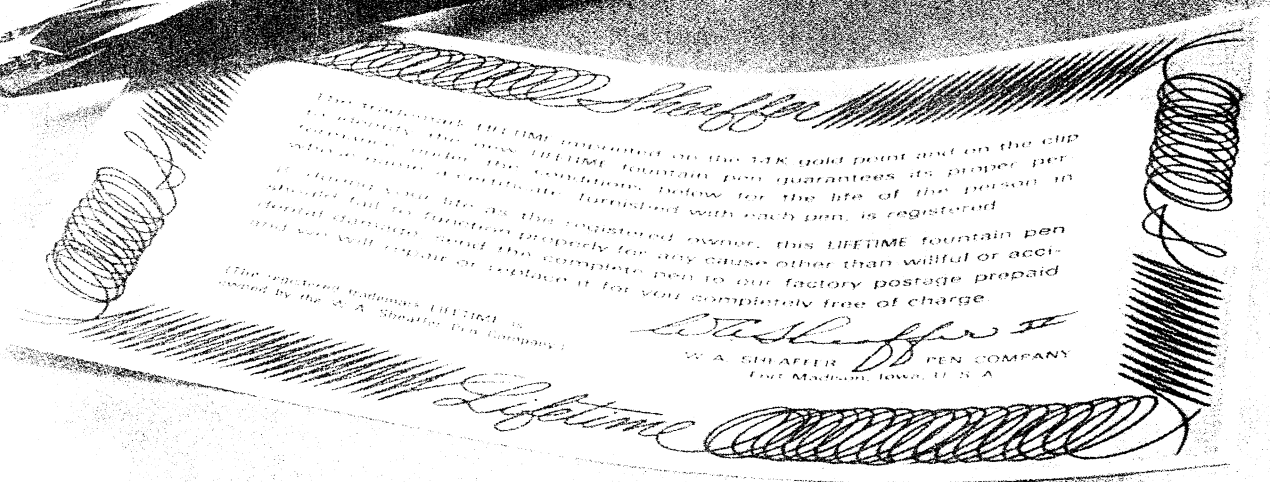 Sheaffer
The trademark LIFETIME imprinted on the 14K gold point and on the clip
to identify this new LIFETIME fountain pen guarantees its proper per-
formance under the conditions below for the life of the person in
whose name a certificate, furnished with each pen, is registered.
If during your life as the registered owner, this LIFETIME fountain pen
should fail to function properly for any cause other than willful or acci-
dental damage, send the complete pen to our factory postage prepaid
and we will repair or replace it for you completely free of charge.
(The registered trademark LIFETIME is
owned by the W. A. Sheaffer Pen Company.)
W A Sheaffer II
W. A. SHEAFFER PEN COMPANY
Fort Madison, Iowa, U. S. A.
Lifetime